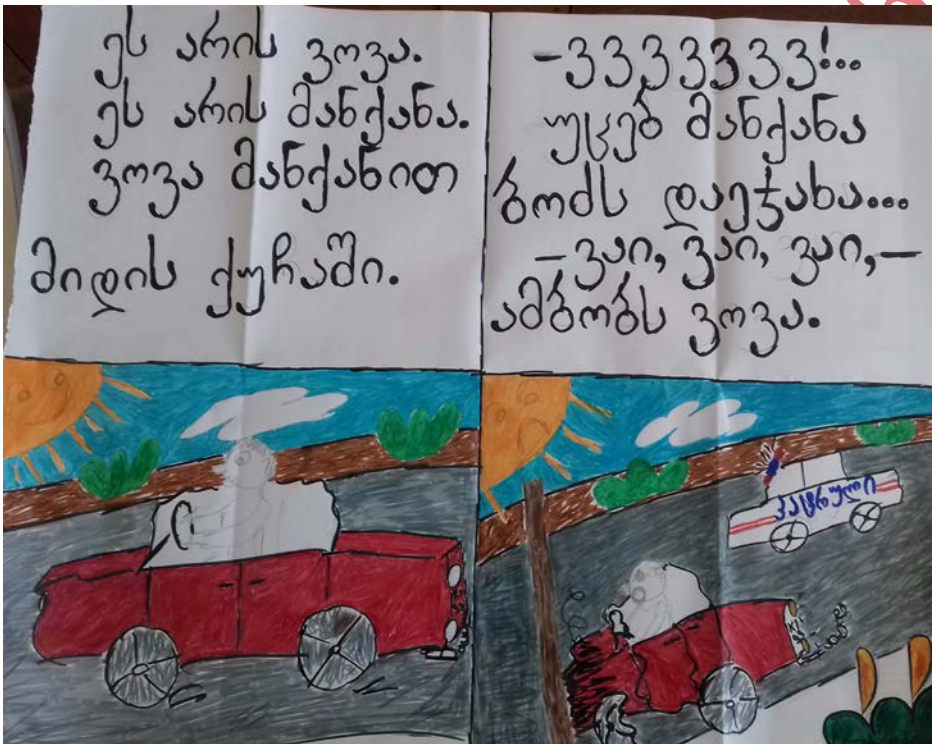 ეს არის ვოვა.
ეს არის მანქანა.
ვოვა მანქანით
მიდის ქუჩაში.
-ვვვვვვვ!..
უცებ მანქანა
ბოძს დაეჯახა...
-ვაი, ვაი, ვაი,-
ამბობს ვოვა.
პატრული